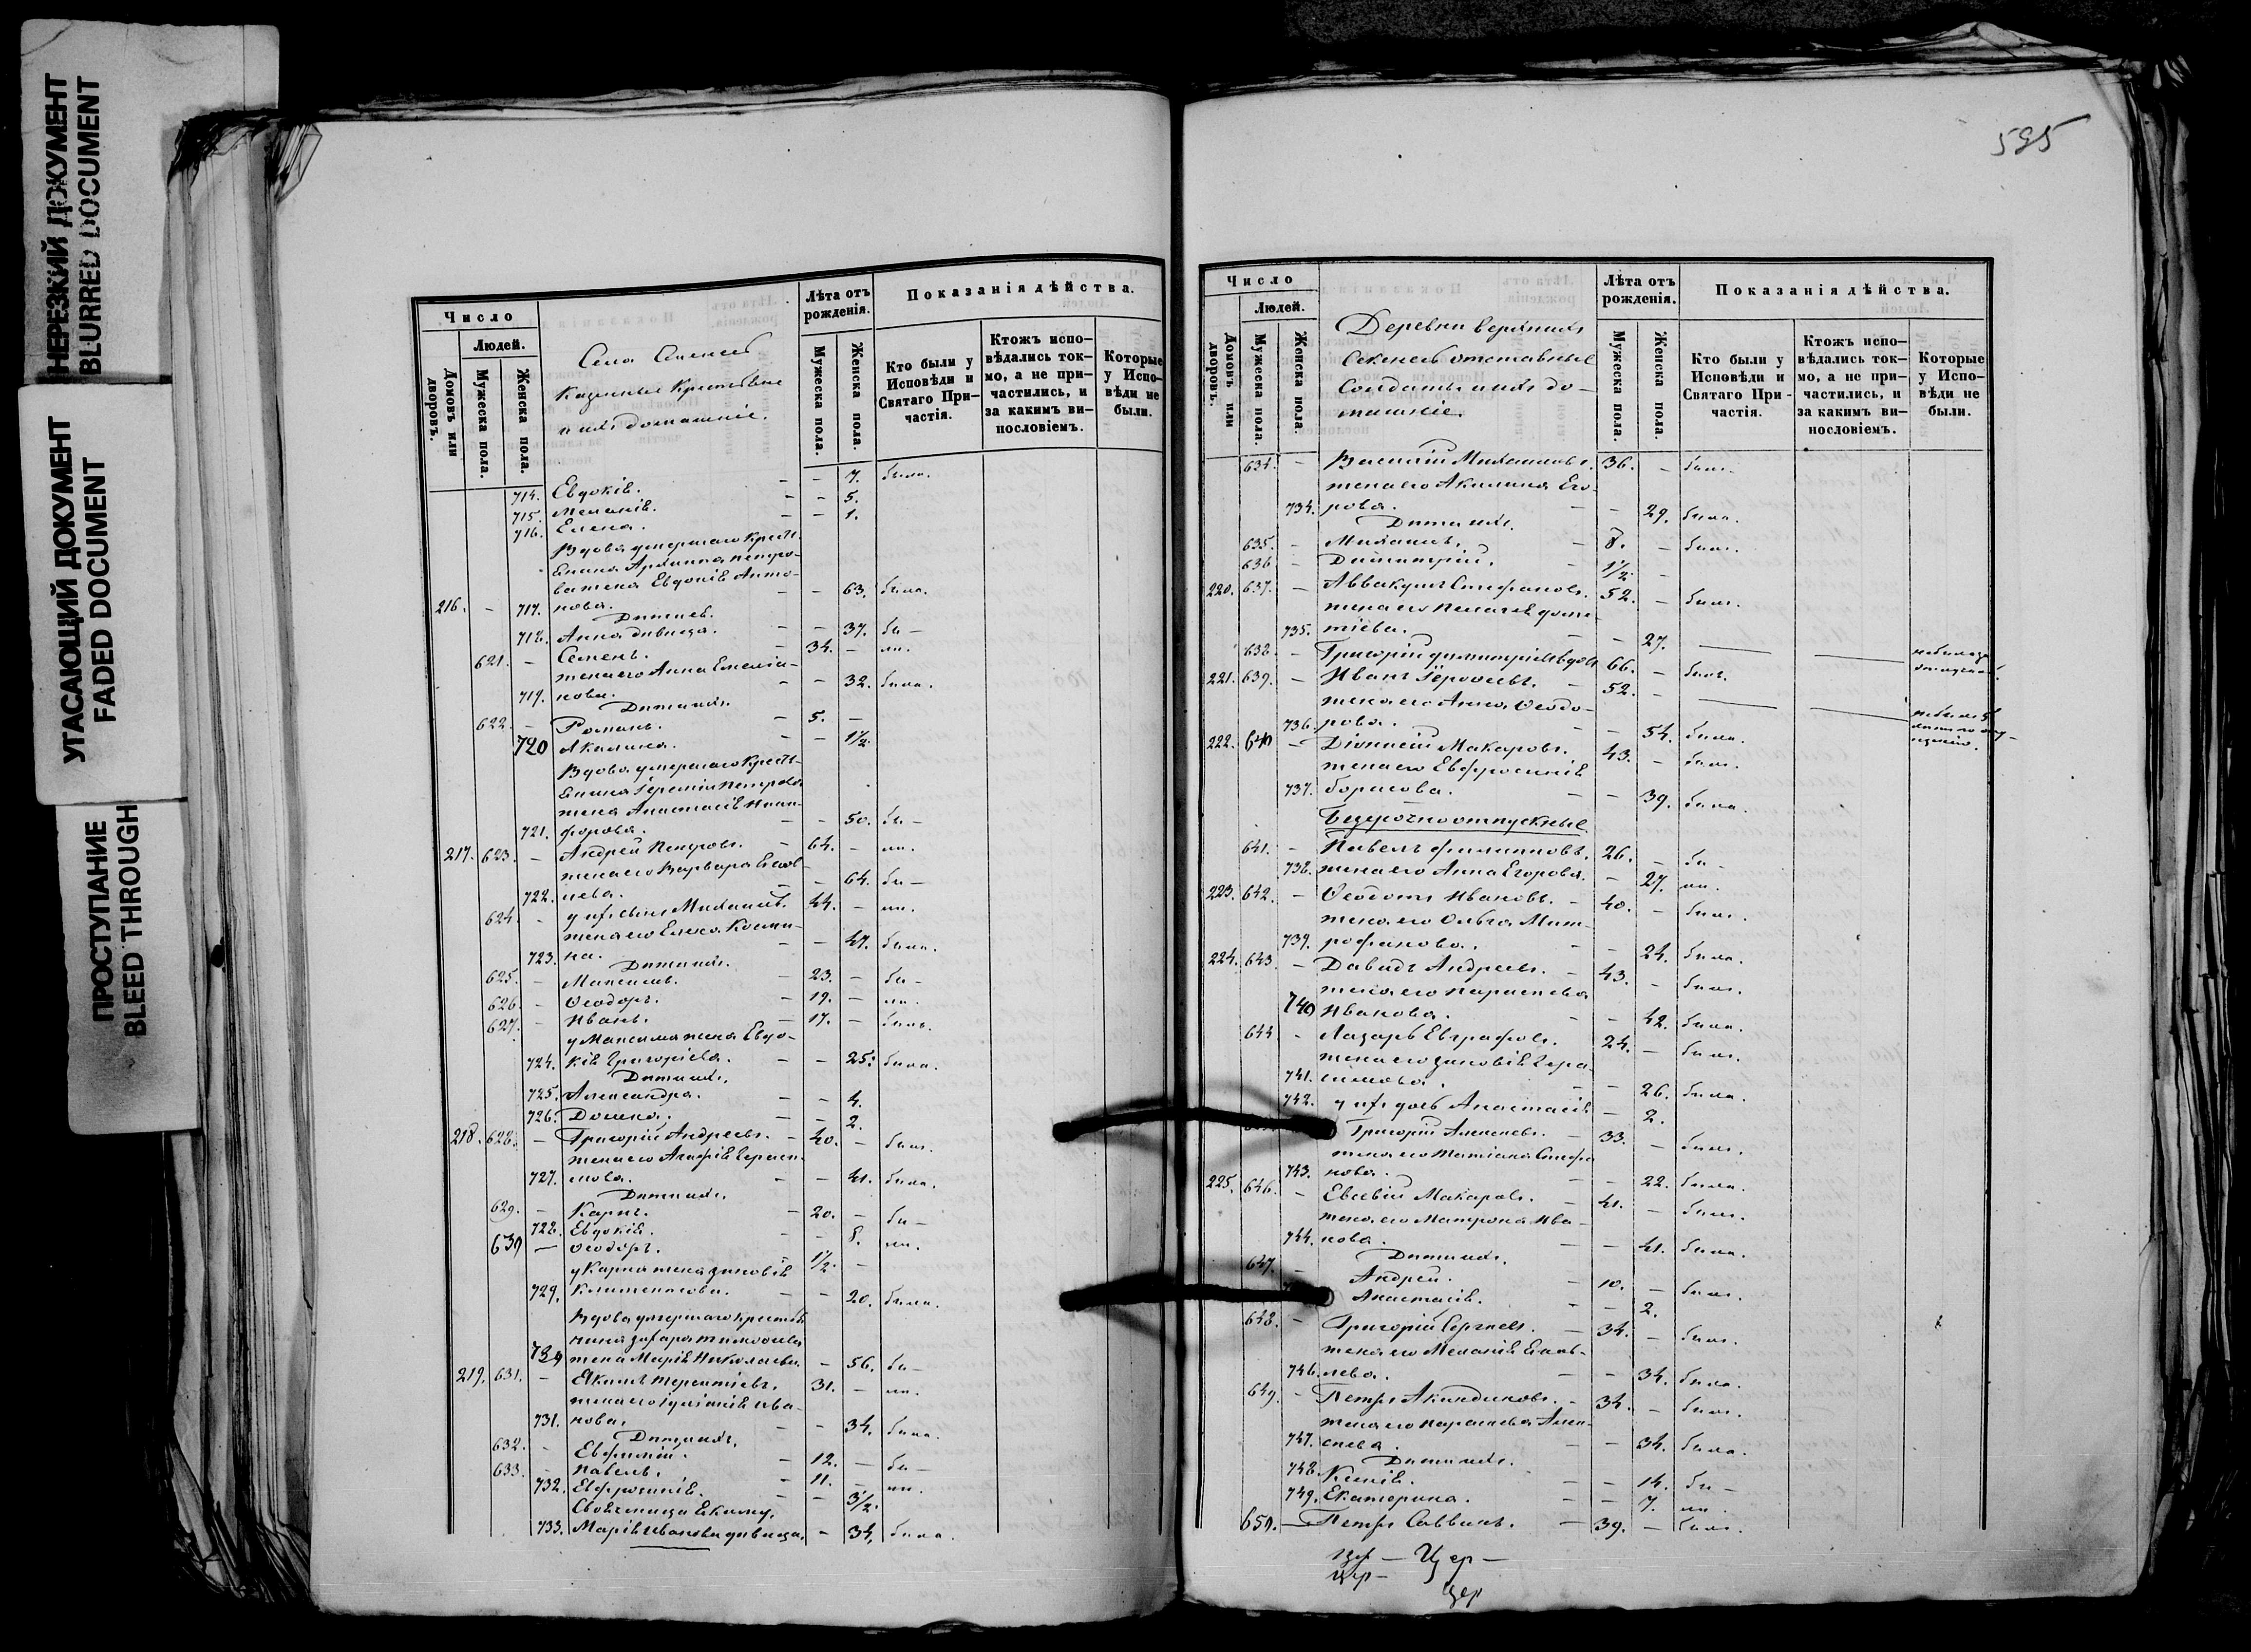 НЕРЕЗКИЙ ДОКУМЕНТ
BLURRED DOCUMENT
УГАСАЮЩИЙ ДОКУМЕНТ
FADED DOCUMENT
ПРОСТУПАНИЕ
BLEED THROUGH
Число
Людей.
Домовъ или дворовъ.
Мужеска пола.
Женска пола.
Села
Казенные Крестьяне
и ихъ домашніе.
Лѣта отъ рожденія.
Мужеска пола.
Женска пола.
Показанія дѣйства.
Кто были у Исповѣди и Святаго Причастія.
Ктожъ исповѣдались токмо, а не причастились, и за какимъ винословіемъ.
Которые у Исповѣди не были.
714. Евдокія. - - 7. была.
715. Меланія. - - 5.
716. Елена. - - 1.
Вдова умершаго Кресть-
янина Архиппа Петро-
ва жена Евдокія Анто-
216. - 717. нова. - - 63. была.
Дѣти ея.
718. Анна дѣвица. - - 37. бы-
621. - Семенъ. - 34. - ли.
жена его Анна Емелья-
719. нова. - - 32. была.
Дѣти ихъ.
622. - Романъ. - 5. -
720 Акилина. - - 1½.
Вдова умершаго Кресть-
янина Петрова
жена Анастасія Ники-
721. форова. - - 50. бы-
217. 623. - Андрей Петровъ. - 64. - ли.
жена его Варвара
722. лева. - - 64. бы-
624. - у нихъ сынъ Михаилъ. 44. - ли.
жена его Елена Косми-
723. на. - - 47. была.
Дѣти ихъ.
625. - Максимъ. - 23. - бы-
626. - Ѳеодоръ. - 19. - ли.
627. - Иванъ. - 17. - былъ.
у Максима жена Евдо-
724. кія Григорьева. - - 25. была.
Дѣти ихъ.
725. Александра. - - 4.
726. Домна. - - 2.
218. 628. - Григорій Андреевъ. - 40. - былъ.
жена его Агафія Гераси-
727. мова. - - 41. была.
Дѣти ихъ.
629. - Карпъ. - 20. - бы-
728. Евдокія. - - 8. ли.
630 - Ѳеодоръ. - ½. -
у Карпа жена Зиновія
729. Климентова. - - 20. была.
Вдова умершаго Крестья-
нина Захара Тимоѳеева
730 жена Марія Николаева. - 56. бы-
219. 631. - Екимъ Терентіевъ. 31. - ли.
жена его Іуліанія Ива-
731. нова. - - 34. была.
Дѣти ихъ.
632. - Евфимій. - 12. - бы-
633. - Павелъ. - 11. - ли.
732. Евфросинія. - - 3½.
Свояченица Екиму,
733. Марія Иванова дѣвица. - 34. была.
595
Число
Людей.
Домовъ или дворовъ.
Мужеска пола.
Женска пола.
Деревни Верхнихъ
отставные
Солдаты и ихъ до-
машніе.
Лѣта отъ рожденія.
Мужеска пола.
Женска пола.
Показанія дѣйства.
Кто были у Исповѣди и Святаго Причастія.
Ктожъ исповѣдались токмо, а не причастились, и за какимъ винословіемъ.
Которые у Исповѣди не были.
634. - Василій Михаиловъ. 36. - былъ.
жена его Акилина Его-
734. рова. - - 29. была.
Дѣти ихъ.
635. - Михаилъ. - 8. - былъ.
636 - Димитрій. - 1½. -
220. 637. - Аввакумъ Стефановъ. 52. - былъ.
жена его Пелагея
735. тіева. - - 27.
638. - Григорій Димитріевъ вдовъ 66. - былъ.
221. 639. - Иванъ Іероѳеевъ. - 52. -
жена его Анна Ѳеодо-
736. рова. - - 54. была.
222. 640 - Діонисій Макаровъ. 43. - былъ.
жена его Евфросинія
737. Борисова. - - 39. была.
Безсрочно отпускные
641. - Павелъ Филипповъ. 26. - бы-
738. жена его Анна Егорова. - 27. ли.
223. 642. - Ѳеодотъ Ивановъ. - 40. - былъ.
жена его Ольга Мит-
739. рофанова. - - 24. была.
224. 643. - Давидъ Андреевъ. - 43. - былъ.
жена его Параскева
740 Иванова. - - 42. была.
644 - Лазарь Евграфовъ. 24. - былъ.
жена его Зиновія Гера-
741. симова. - - 26. была.
742. у нихъ дочь Анастасія - 2.
Григорій Алексеевъ. - 33. - былъ.
жена его Татіана Стефа-
743. нова. - - 22. была.
225. 646. - Евсевій Макаровъ. - 41. - былъ.
жена его Матрона Ива-
744. нова. - - 41. была.
Дѣти ихъ.
647. - Андрей. - 10. - былъ.
Анастасія. - - 2.
648. - Григорій Сергіевъ. - 34. - былъ.
жена его Меланія
746. лева. - - 34. была.
649. - Петръ Акиндиновъ. - 34. - былъ.
жена его Параскева Алек-
747. сеева. - - 34. была.
Дѣти ихъ.
748. Ксенія. - - 14. бы-
749. Екатерина. - - 7. ли.
650. - Петръ Саввинъ. - 39. - былъ.